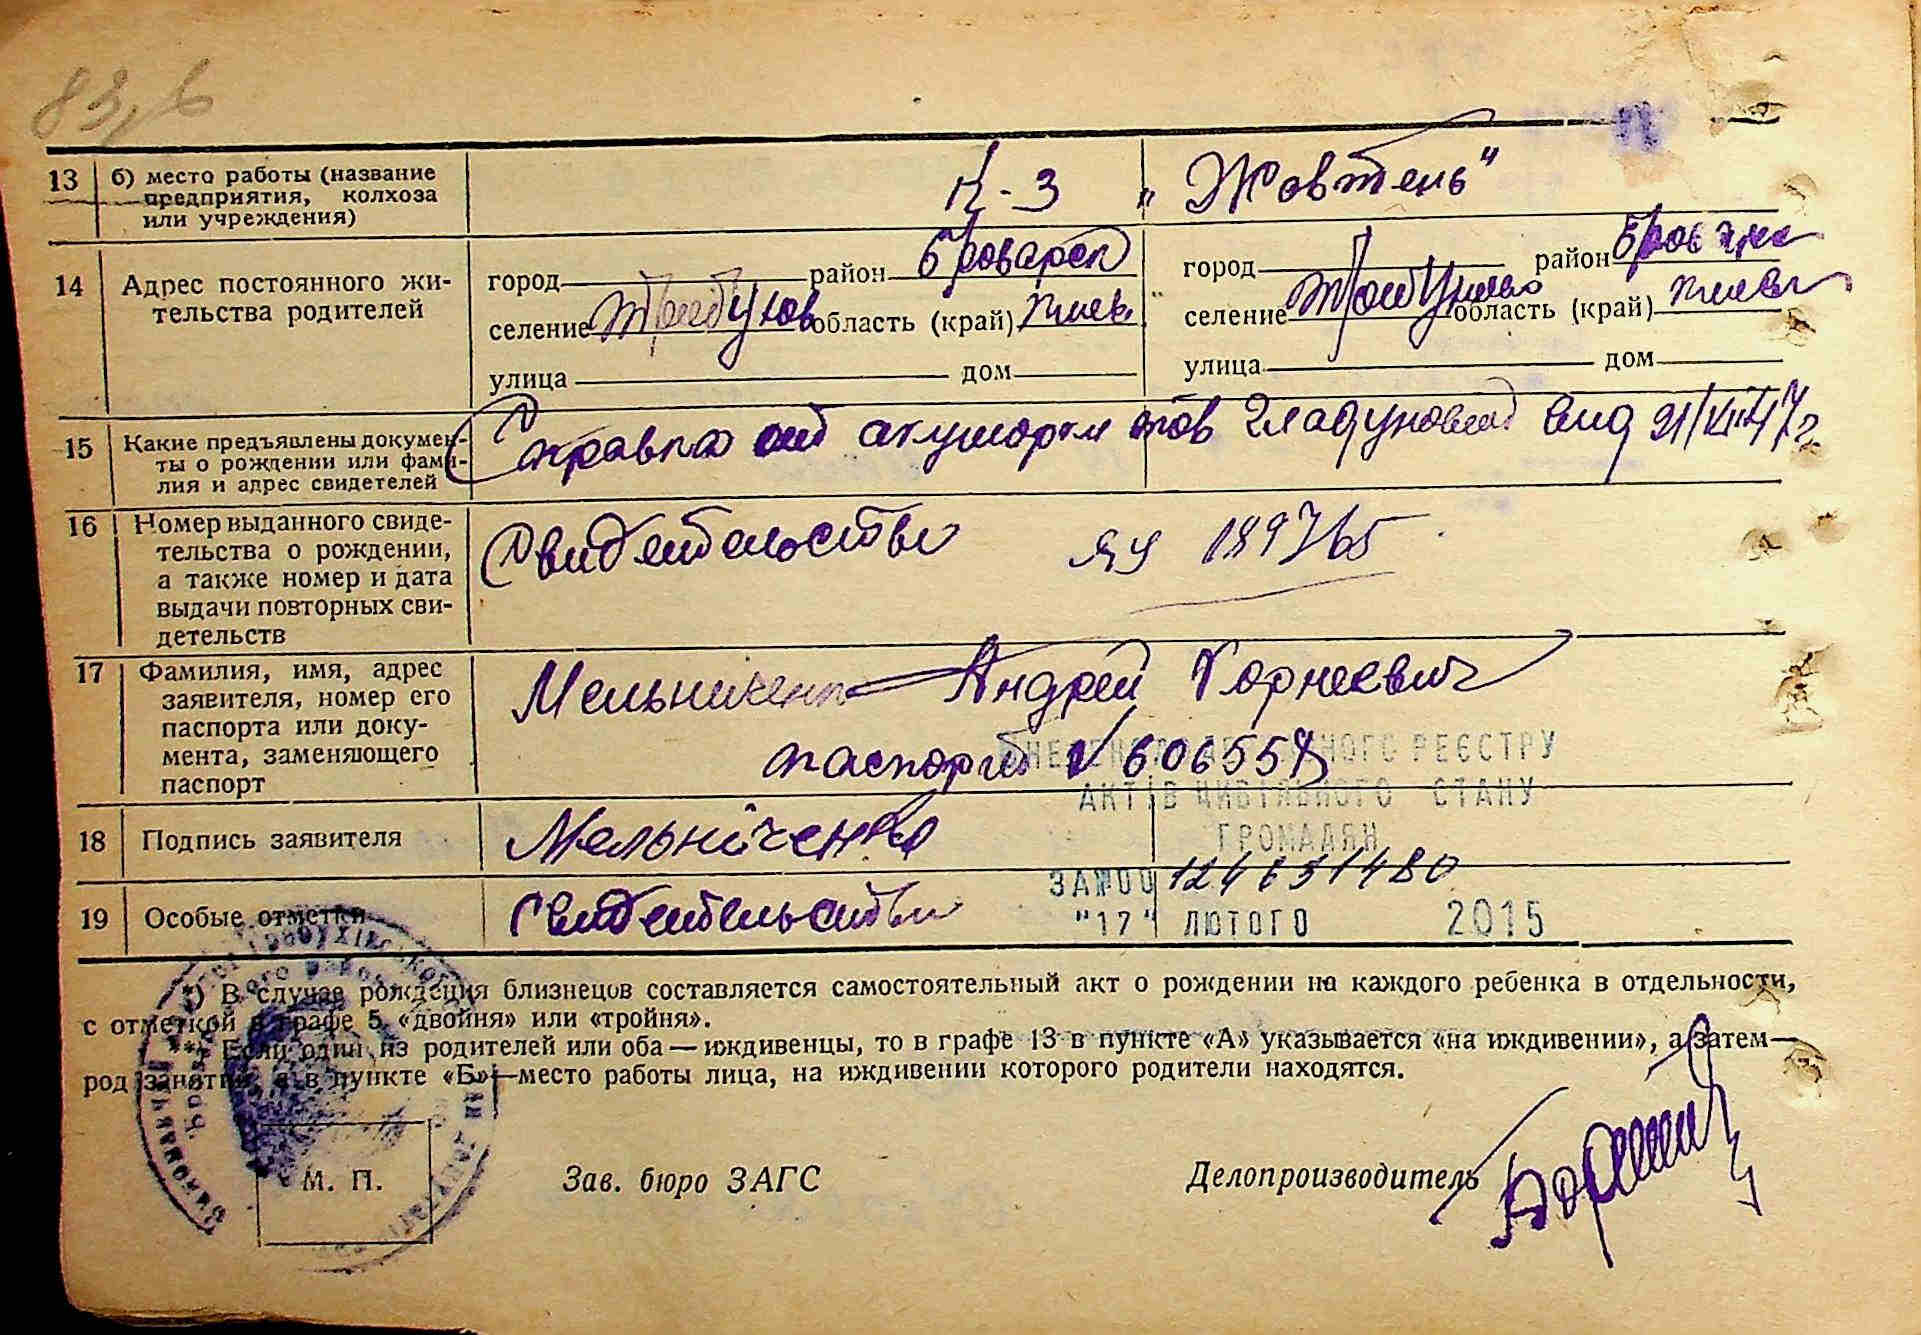 83,6
13 б) место работы (название предприятия, колхоза или учреждения) К-3 „Жовтень"
14 Адрес постоянного жительства родителей
город район Броварск город район
селение Требухов область (край) Киев. селение область (край) Киевс
улица дом улица дом
15 Какие предъявлены документы о рождении или фамилия и адрес свидетелей Справка от акушорки тов Гладуновой вид 21/XII 47 г.
16 Номер выданного свидетельства о рождении, а также номер и дата выдачи повторных свидетельств Свидетельство ЯУ 189765
17 Фамилия, имя, адрес заявителя, номер его паспорта или документа, заменяющего паспорт Мельниченко Андрей Корнеевич
паспорт № 606558
ВНЕСЕНО ДО ДЕРЖАВНОГО РЕЄСТРУ
АКТІВ ЦИВІЛЬНОГО СТАНУ
ГРОМАДЯН
18 Подпись заявителя Мельніченко
ЗА №00 124631480
19 Особые отметки Свидетельство
"17" ЛЮТОГО 2015
*) В случае рождения близнецов составляется самостоятельный акт о рождении на каждого ребенка в отдельности,
с отметкой в графе 5 «двойня» или «тройня».
**) Если один из родителей или оба — иждивенцы, то в графе 13 в пункте «А» указывается «на иждивении», а затем—
род занятий, а в пункте «Б»—место работы лица, на иждивении которого родители находятся.
М. П. Зав. бюро ЗАГС Делопроизводитель